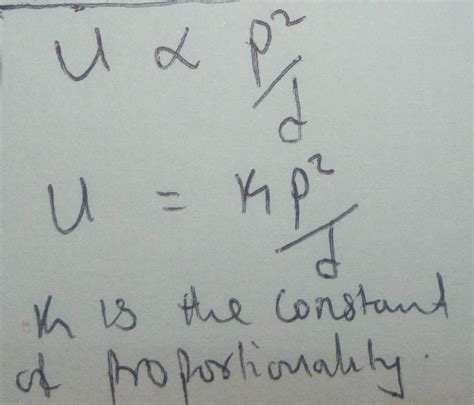 U ∝ p²/d
U = kp²/d
k is the constant
of proportionality.